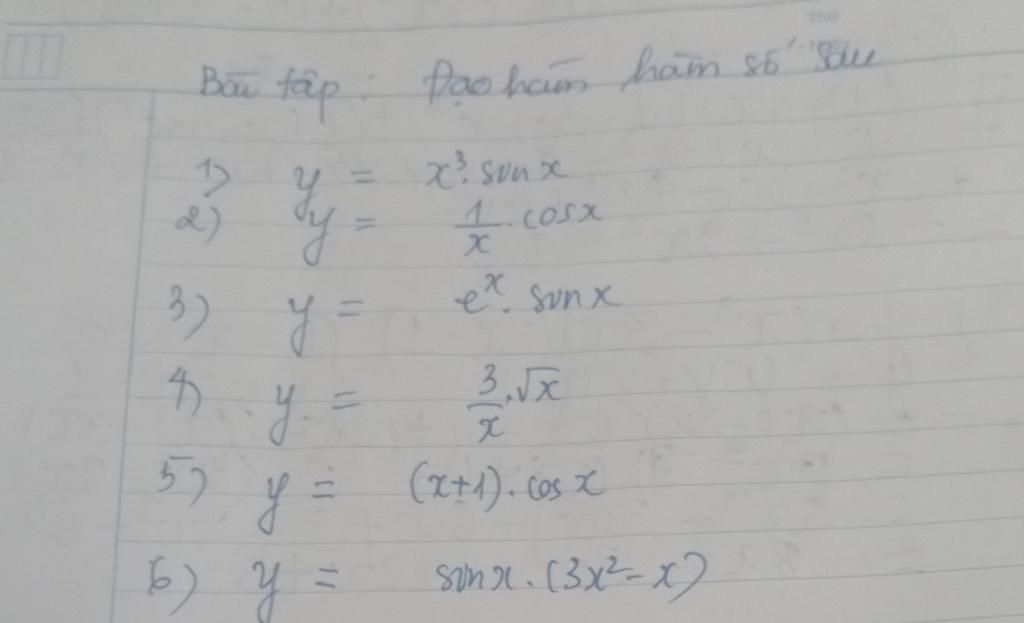 Bài tập : Đạo hàm hàm số sau
1) y = x³. sin x
2) y = 1/x . cosx
3) y = eˣ. sin x
4) y = 3/x . √x
5) y = (x+1). cos x
6) y = sin x . (3x² - x)